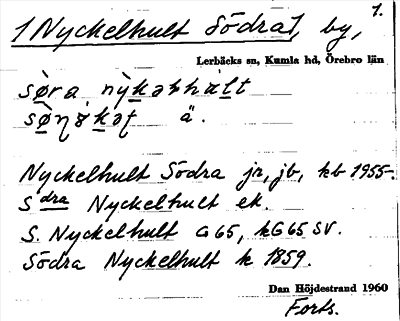 1.
[Nyckelhult Södra], by,
Lerbäcks sn, Kumla hd, Örebro län
ä.
Nyckelhult Södra jr, jb, kb 1955-.
S dra Nyckelhult ek.
S. Nyckelhult G65, kG65 SV.
Södra Nyckelhult k 1859.
Dan Höjdestrand 1960
Forts.